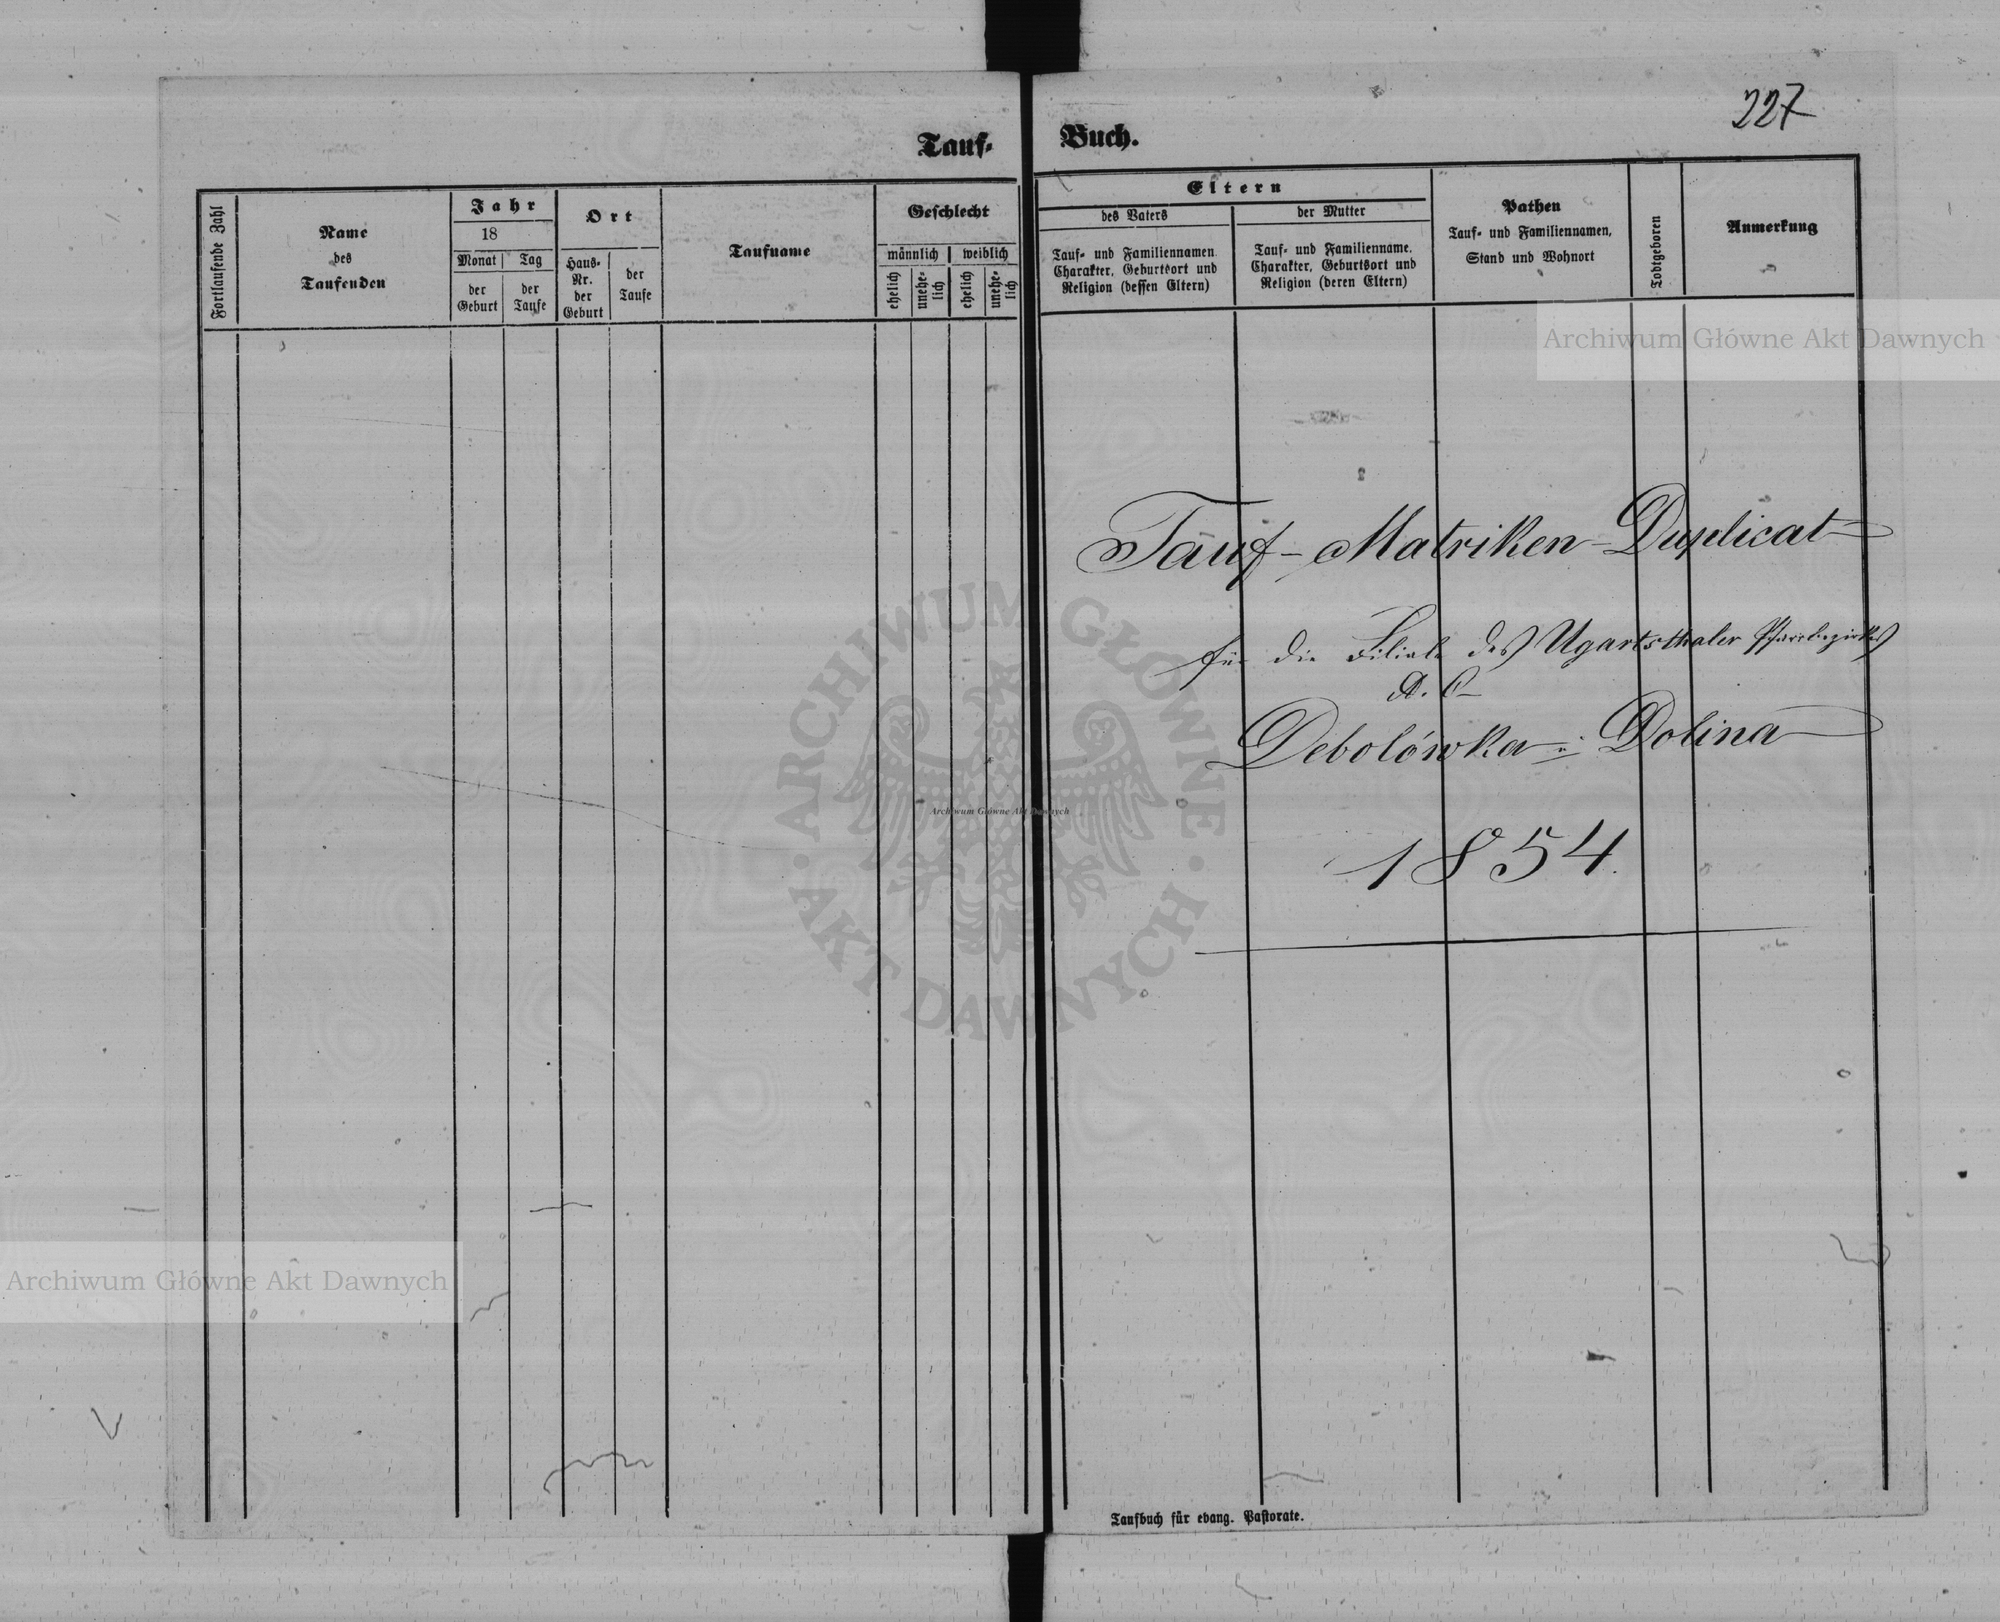 227
Tauf-
Buch.
Fortlaufende Zahl
Name
des
Taufenden
Jahr
18
Monat
Tag
der
Geburt
der
Taufe
Ort
Haus-
Nr.
der
Geburt
der
Taufe
Taufname
Geschlecht
männlich
weiblich
ehelich
unehe-
lich
ehelich
unehe-
lich
Eltern
des Vaters
der Mutter
Tauf- und Familiennamen
Charakter, Geburtsort und
Religion (dessen Eltern)
Tauf- und Familienname,
Charakter, Geburtsort und
Religion (deren Eltern)
Pathen
Tauf- und Familiennamen,
Stand und Wohnort
Todtgeboren
Anmerkung
Archiwum Główne Akt Dawnych
Tauf-Matriken-Duplicat
für die Filiale des Ugartsthaler Pfarrbezirkes
A. C.
Debolówka u: Dolina
1854.
ARCHIWUM GŁÓWNE · AKT DAWNYCH ·
Archiwum Główne Akt Dawnych
Archiwum Główne Akt Dawnych
Taufbuch für evang. Pastorate.